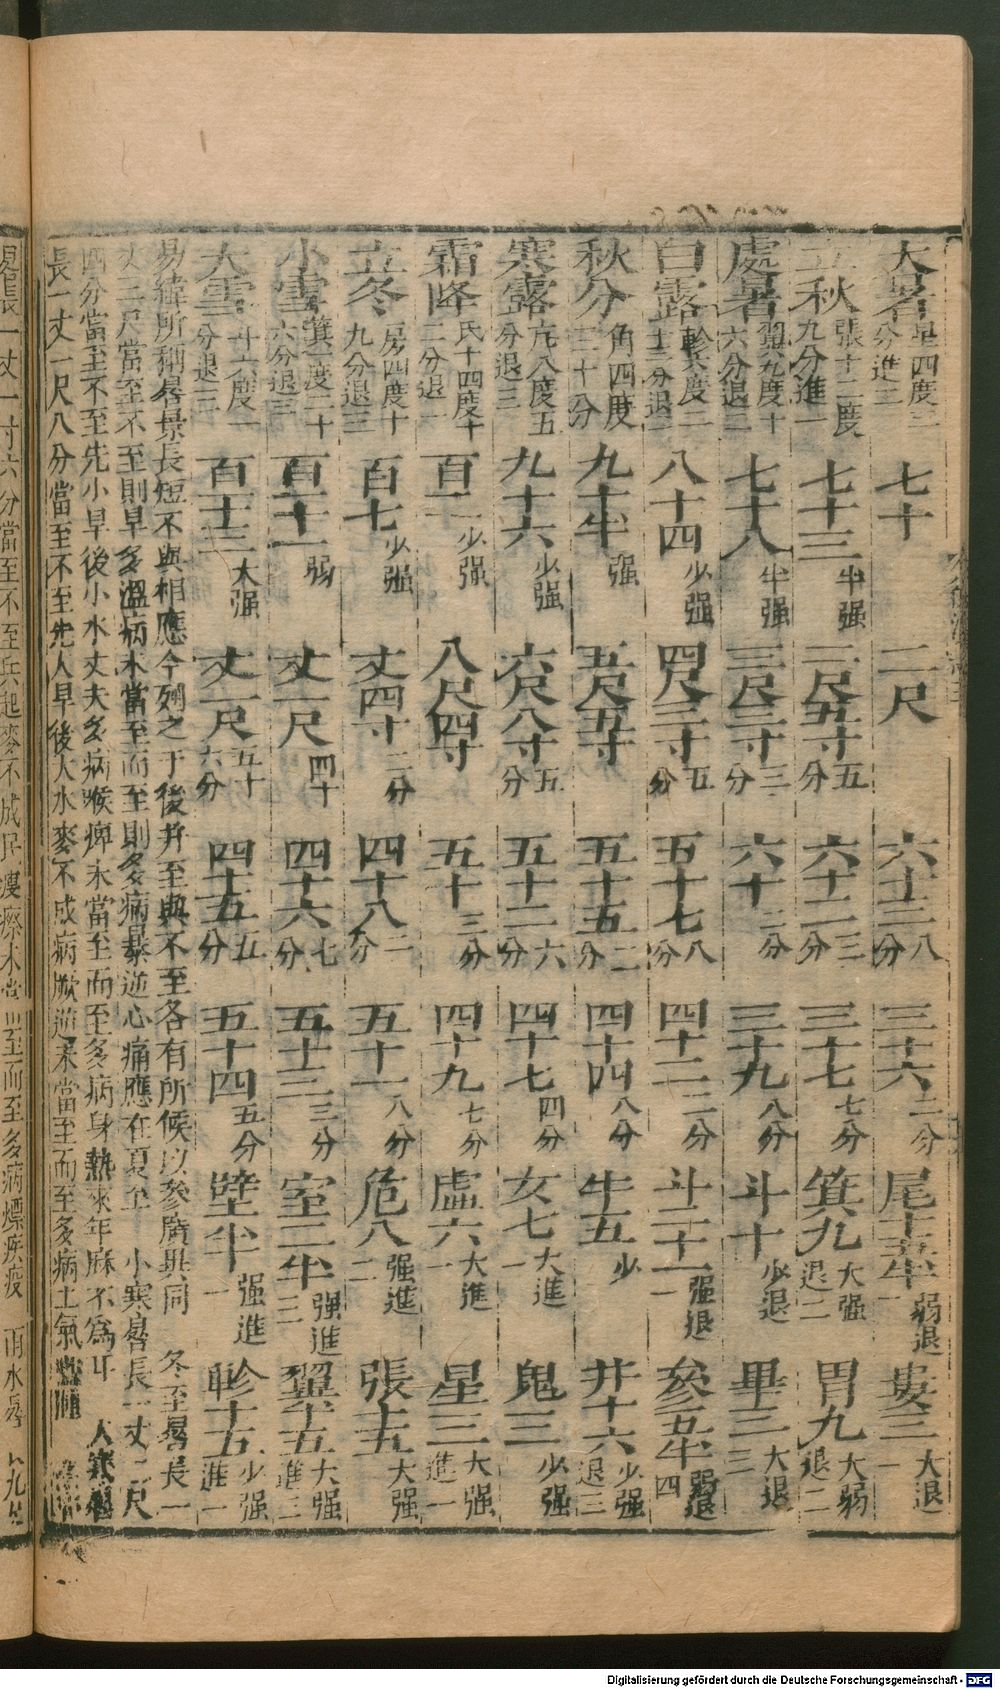 大暑 星四度二分進三 七十 二尺 六十三八分 三十六二分 尾十五半弱退一 婁三大退一
立秋 張十二度九分進一 七十三半强 二尺五寸五分 六十二三分 三十七七分 箕九大强退二 胃九大弱退二
處暑 翼九度十六分退二 七十八半强 三尺三寸三分 六十二分 三十九八分 斗十少退 畢三大退三
白露 軫六度二十三分退 八十四少强 四尺三寸五分 五十七八分 四十二二分 斗二十一强退一 參五半弱退四
秋分 角四度三十分 九十半强 五尺五寸 五十五二分 四十四八分 牛五少 井十六少强退三
寒露 亢八度五分退三 九十六少强 六尺八寸五分 五十二六分 四十七四分 女七大進一 鬼三少强
霜降 氐十四度十二分退一 百二少强 八尺四寸 五十三分 四十九七分 虛六大進一 星三大强進一
立冬 房四度十九分退三 百七少强 丈四寸二分 四十八二分 五十一八分 危八强進二 張十五大强
小雪 箕一度二十六分退三 百十一弱 丈一尺四十 四十六七分 五十三三分 室三半强進三 翼十五大强進三
大雪 斗六度一分退二 百十三大强 丈一尺五十六分 四十五五分 五十四五分 壁半强進一 軫十五少强進一
易緯所稱晷景長短不與相應今列之于後并至與不至各有所候以參廣異同 冬至晷長一
丈三尺當至不至則旱多溫病未當至而至則多病暴逆心痛應在夏至 小寒晷長一丈二尺
四分當至不至先小旱後小水丈夫多病喉痺未當至而至多病身熱來年麻不爲耳 大寒晷
長一丈一尺八分當至不至先人旱後大水麥不成病厥逆未當至而至多病上氣
晷長一丈一寸六分當至不至兵起麥不成民瘻瘵未當至而至多病熛疾疫 雨水晷
Digitalisierung gefördert durch die Deutsche Forschungsgemeinschaft - DFG